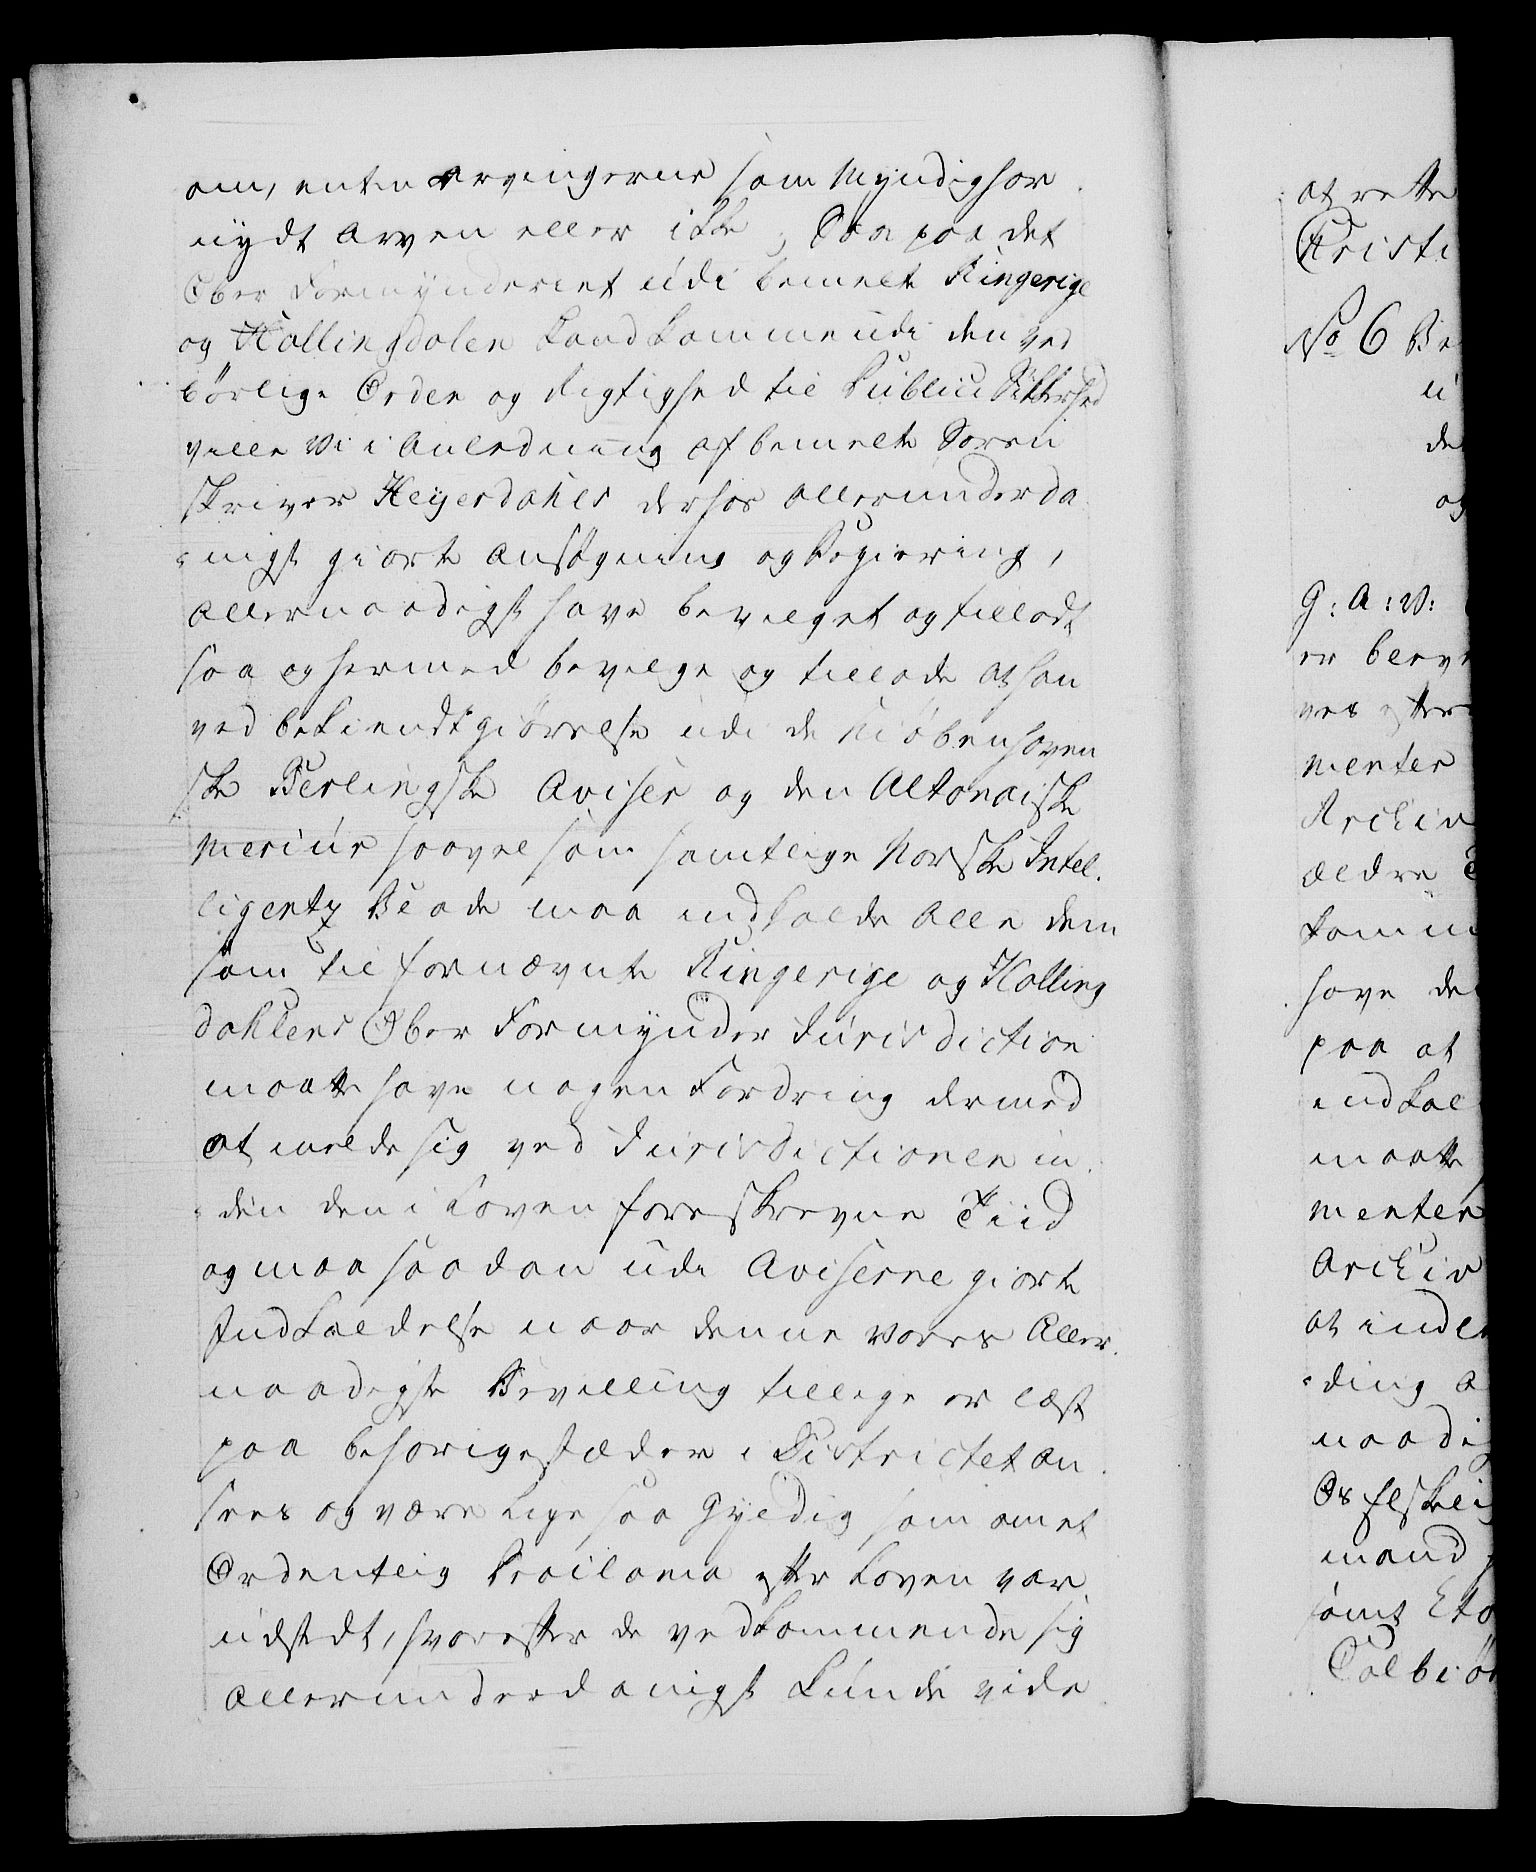 om, enten arvingerne som Myndig har
nydt Arven eller ikke; Saa paa det
Ober Formynderiet udi bemelte Ringerige
og Hallingdalen kand komme udi den ved
børlige Orden og Rigtighed til Publici Sikkerhed
ville Vi i Anledning af bemelte Soren
skriver Heyerdahls derhos allerunderda
nigst giorte Ansøgning og Begiering,
allernaadigst have bevilget og tilladt
saa og hermed bevilge og tillade at han
ved bekiendtgiørelse udi de Kiøbenhavn
ske Berlingske Aviser og den Altonaiske
Mercur saavel som samtlige Norske Intel.
ligentz Blade maa indkalde alle dem
som til fornævnte Ringerige og Halling
dahlens Ober Formynder Jurisdiction
maatte have nogen Fordring dermed
at melde sig ved Jurisdictionen in
den den i Loven foreskrevne Tiid
og maa saadan udi Aviserne giorte
Indkaldelse naar denne Vores Aller
naadigste Bevilling tillige er læst
paa behørige stæder i Districtet an
sees og være lige saa Gyldig som om et
Ordentlig Proclama efter Loven var
udstædt, hvorefter de vedkommende sig
allerunderdanigst kunde vide
at rette
Christi
No 6 Be
u
de
og
G: A: V:
er blevn
ves efter
menter
Archiv
ældre
komm
have de
paa at
indkal
maatte
menter
Archiv
at inde
ding a
naadi
Os Elskelig
mand
samt Eta
Colbiør